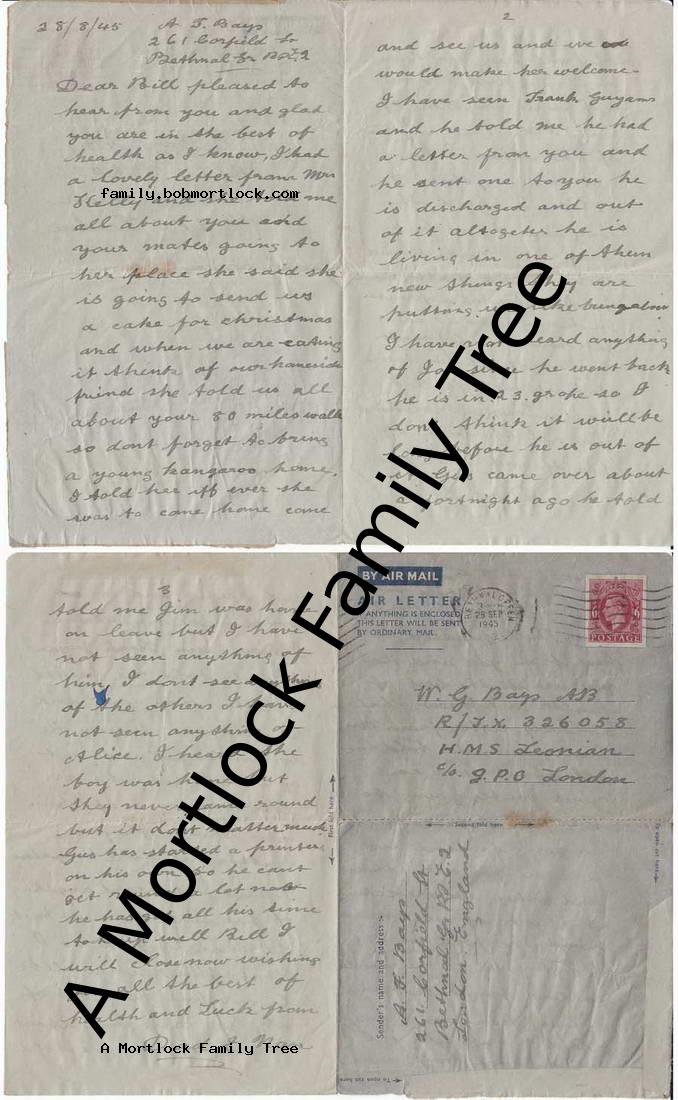 28/8/45
A F Bays
261 Corfield St
Bethnal Gr
Dear Bill pleased to
hear from you and glad
you are in the best of
health as I know, I had
a lovely letter from Mrs
family.bobmortlock.com
Kelly and she told me
all about you and
your mates going to
her place she said she
is going to send us
a cake for christmas
and when we are eating
it think of
frind she told us all
about your 80 miles walk
so dont forget to bring
a young kangaroo home,
I told her iff ever she
was to come home come
2
and see us and we
would make her welcome.
I have seen Frank
and he told me he had
a letter from you and
he sent one to you he
is discharged and out
of it altogeter he is
living in one of them
new things they are
putting up like
I have not heard anything
of Joe since he went back
he is in 23. grope so I
dont think it will be
long before he is out of
it. Gus came over about
a fortnight ago he told
3
told me Jim was home
on leave but I have
not seen anything of
him, I dont see anything
of the others I have
not seen anything of
Alice. I heard she
boy was home but
they never came round
but it dont matter much
Gus has started a printer
on his own so he cant
get round a lot now
he has got all his time
to keep well Bill I
will close now wishing
all the best of
health and Luck from
A Mortlock Family Tree
BY AIR MAIL
AIR LETTER
IF ANYTHING IS ENCLOSED
THIS LETTER WILL BE SENT
BY ORDINARY MAIL.
BETHNAL GREEN
28 SEP
1945
POSTAGE
W. G Bays AB
R/J.X. 326058
H.M.S Leonian
c/o G.P.O London
First fold here
Second fold here
To open cut here
Sender's name and address:-
A. F Bays
261 Corfield St
Bethnal Gr E.2
London England
To open cut here
A Mortlock Family Tree